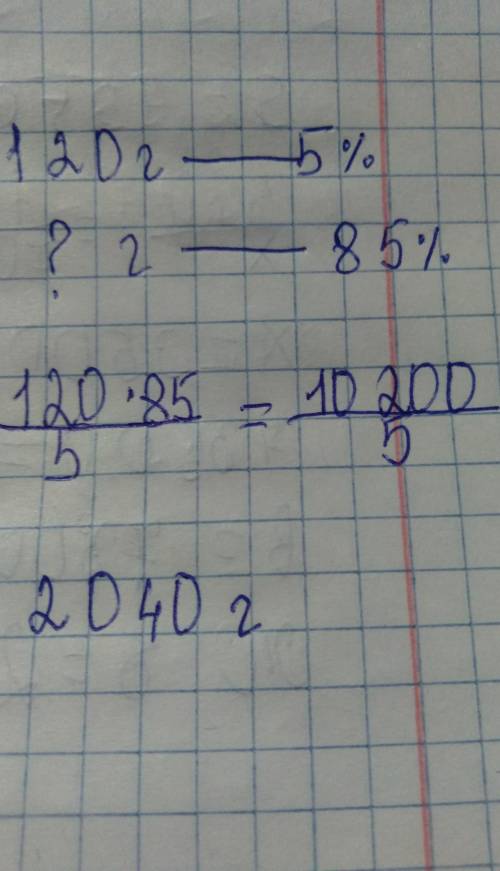 120 г — 5%
? г — 85%
120·85/5 = 10 200/5
2040 г